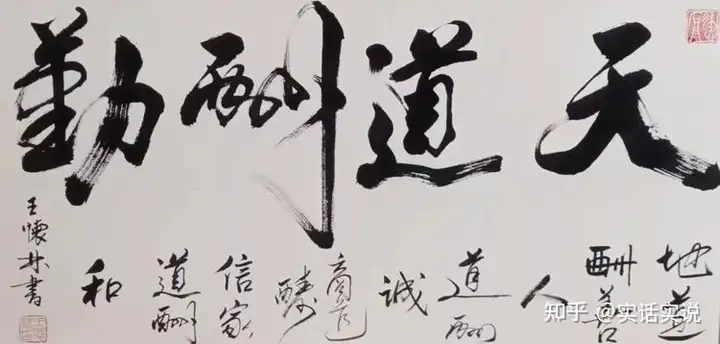 天道酬勤
地道
酬善
人
道酬
诚
商道
酬
信家
道酬
和
王懷林書
知乎 @实话实说